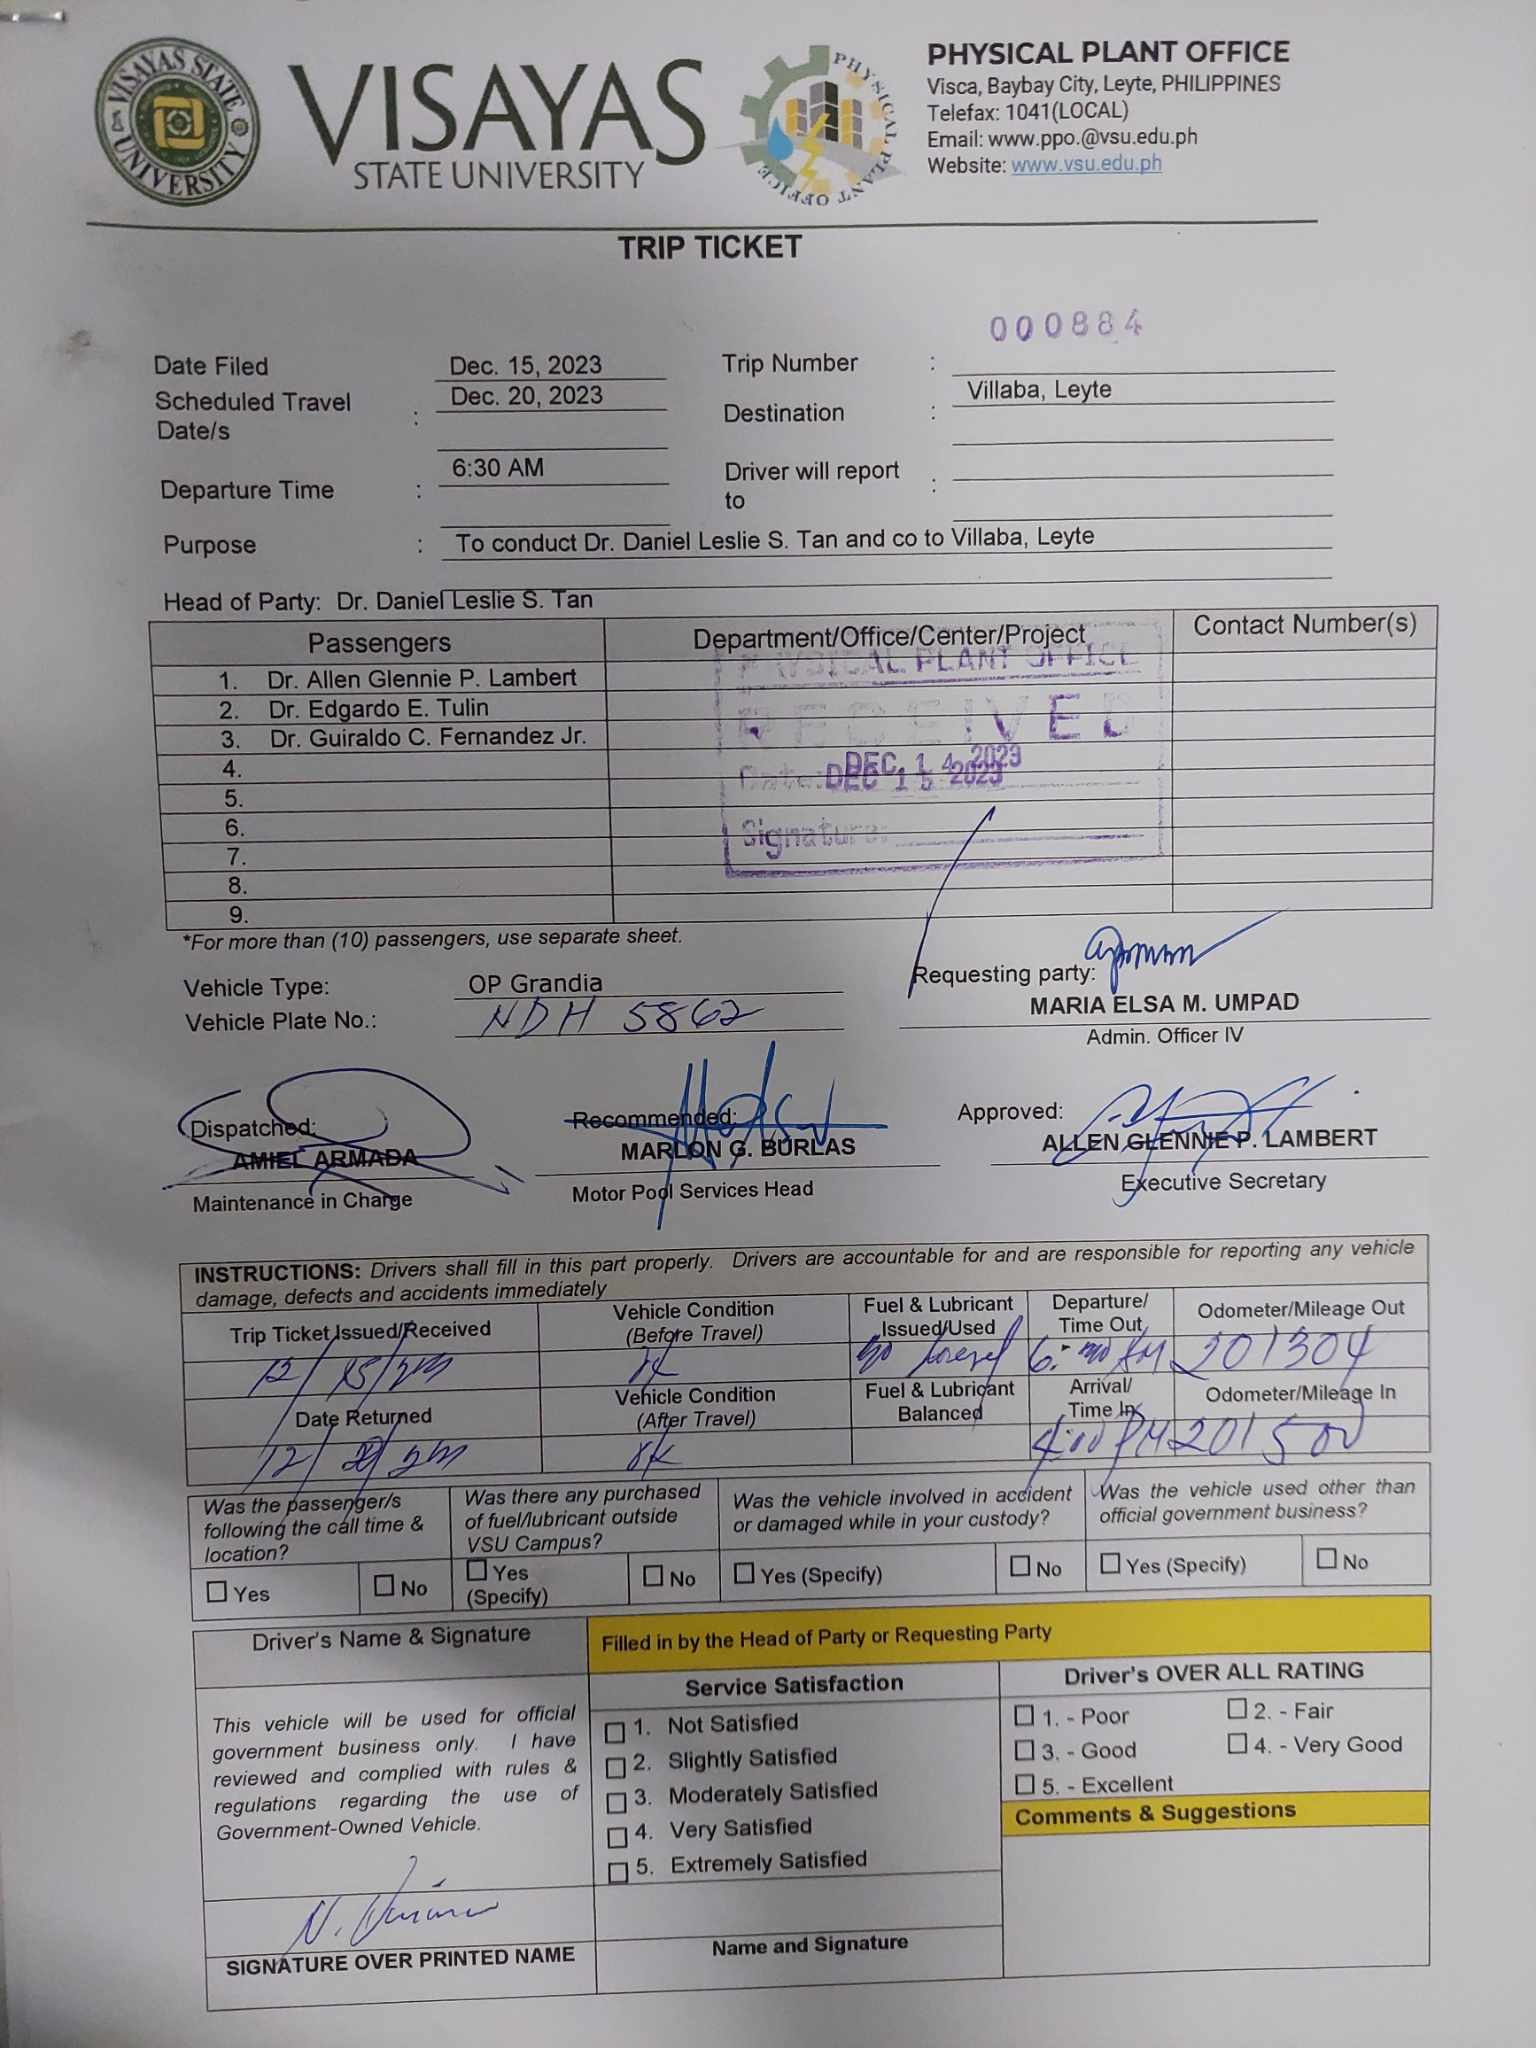 VISAYAS STATE UNIVERSITY
VISAYAS
STATE UNIVERSITY
PHYSICAL PLANT OFFICE
PHYSICAL PLANT OFFICE
Visca, Baybay City, Leyte, PHILIPPINES
Telefax: 1041(LOCAL)
Email: www.ppo.@vsu.edu.ph
Website: www.vsu.edu.ph
TRIP TICKET
000884
Date Filed Dec. 15, 2023 Trip Number :
Scheduled Travel Date/s : Dec. 20, 2023 Destination : Villaba, Leyte
Departure Time : 6:30 AM Driver will report to :
Purpose : To conduct Dr. Daniel Leslie S. Tan and co to Villaba, Leyte
Head of Party: Dr. Daniel Leslie S. Tan
Passengers Department/Office/Center/Project Contact Number(s)
1. Dr. Allen Glennie P. Lambert
2. Dr. Edgardo E. Tulin
3. Dr. Guiraldo C. Fernandez Jr.
4.
5.
6.
7.
8.
9.
PHYSICAL PLANT OFFICE
RECEIVED
DEC 14 2023
Date: DEC 15 2023
Signature:
*For more than (10) passengers, use separate sheet.
Vehicle Type: OP Grandia
Vehicle Plate No.: NDH 5862
Requesting party:
MARIA ELSA M. UMPAD
Admin. Officer IV
Dispatched: Recommended: Approved:
AMIEL ARMADA MARLON G. BURLAS ALLEN GLENNIE P. LAMBERT
Maintenance in Charge Motor Pool Services Head Executive Secretary
INSTRUCTIONS: Drivers shall fill in this part properly. Drivers are accountable for and are responsible for reporting any vehicle
damage, defects and accidents immediately
Trip Ticket Issued/Received Vehicle Condition (Before Travel) Fuel & Lubricant Issued/Used Departure/ Time Out Odometer/Mileage Out
12/15/23 201304
Date Returned Vehicle Condition (After Travel) Fuel & Lubricant Balanced Arrival/ Time In Odometer/Mileage In
OK 4:00 PM 201500
Was the passenger/s following the call time & location?
Was there any purchased of fuel/lubricant outside VSU Campus?
Was the vehicle involved in accident or damaged while in your custody?
Was the vehicle used other than official government business?
Yes No Yes (Specify) No Yes (Specify) No Yes (Specify) No
Driver's Name & Signature
Filled in by the Head of Party or Requesting Party
Service Satisfaction Driver's OVER ALL RATING
This vehicle will be used for official
government business only. I have
reviewed and complied with rules &
regulations regarding the use of
Government-Owned Vehicle.
1. Not Satisfied
2. Slightly Satisfied
3. Moderately Satisfied
4. Very Satisfied
5. Extremely Satisfied
1. - Poor 2. - Fair
3. - Good 4. - Very Good
5. - Excellent
Comments & Suggestions
SIGNATURE OVER PRINTED NAME
Name and Signature